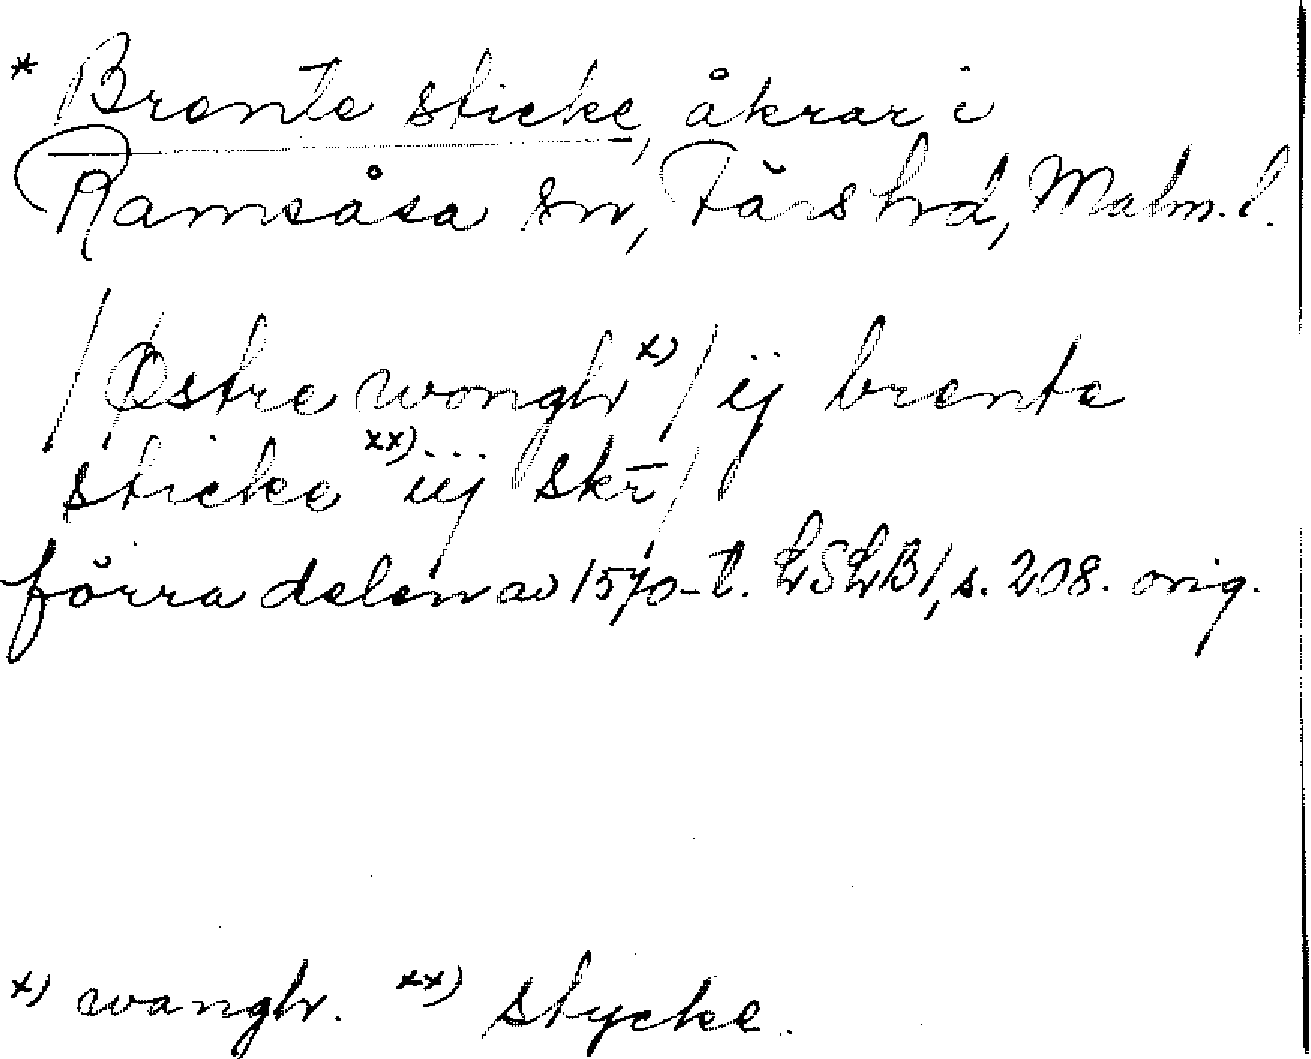 * Brente sticke, åkrar i
Ramsåsa sn, Färs hrd, Malm. l.
/Østre wongh x)/ ij brente
sticke xx) iij skr̄/
förra delen av 1570-t. LSLB1, s. 208. orig.
x) wangh. xx) stycke.